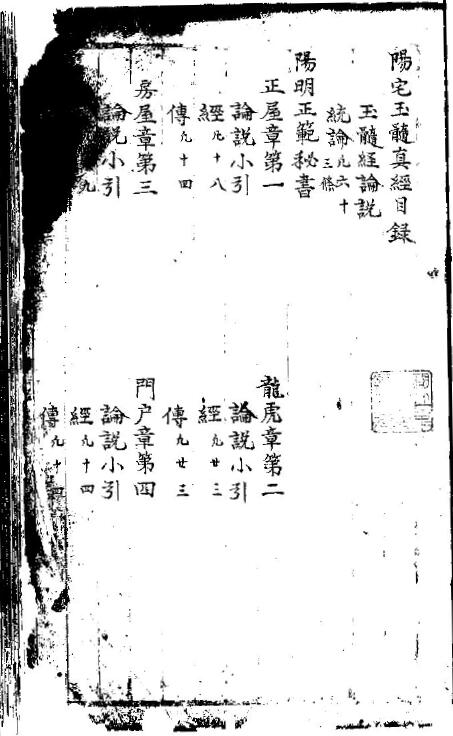 陽宅玉髓真經目錄
玉髓經論説
統論凡六十三條
陽明正範秘書
正屋章第一
論説小引
經凡十八
傳凡十四
龍虎章第二
論説小引
經凡廿三
傳凡廿三
房屋章第三
論説小引
凡
門户章第四
論説小引
經凡十四
傳凡十四